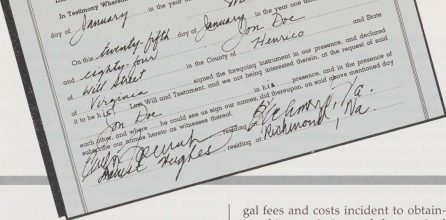 In Testimony Whereof
in the year of
day of January
On this twenty-fifth day of January in the year one thousand
and eighty-four Jon Doe
of Will Street in the County of Henrico and State
of Virginia signed the foregoing instrument in our presence, and declared
it to be his Last Will and Testament, and we not being interested therein, at the request of said
Jon Doe in his presence, and in the presence of
each other, and where he could see us sign our names, did thereupon, on said above mentioned day
subscribe our names hereto as witnesses thereof.
residing at Va.
Hughes, residing at Richmond, Va.
gal fees and costs incident to obtain-